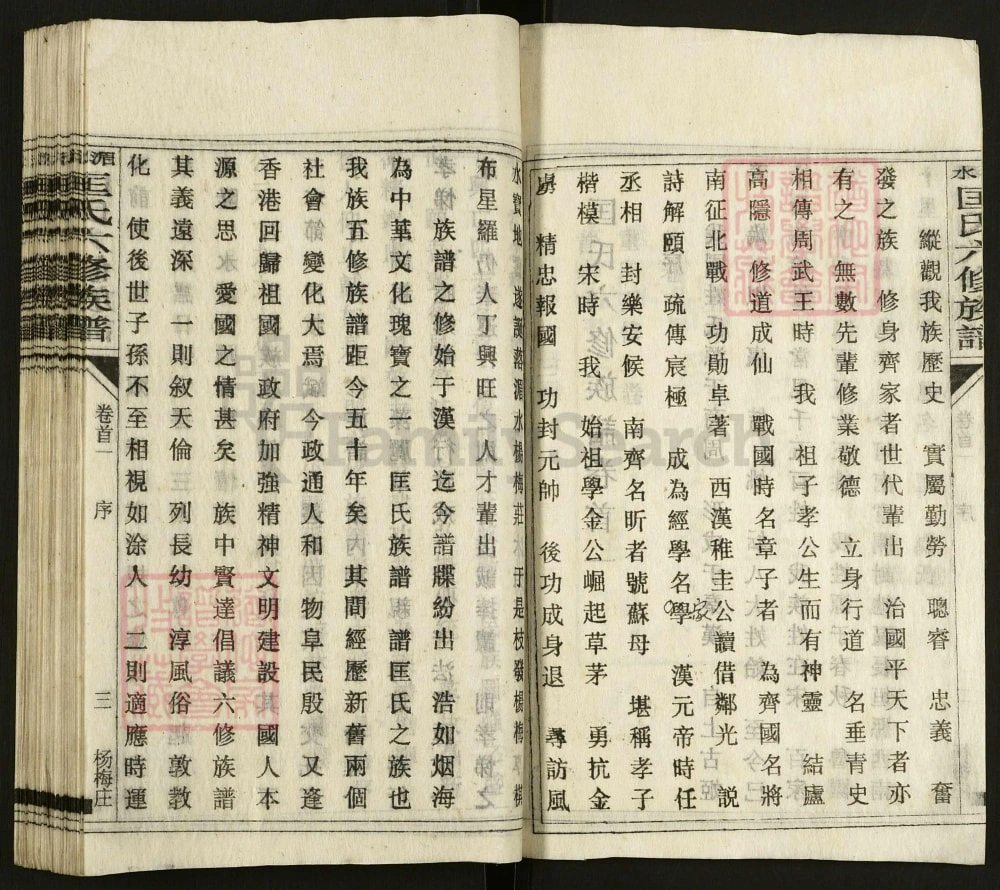 水匡氏六修族譜
卷首一
縱觀我族歷史 實屬勤勞 聰睿 忠義 奮
發之族 修身齊家者世代輩出 治國平天下者亦
有之 無數先輩修業敬德 立身行道 名垂青史
相傳周武王時 我 祖子孝公生而有神靈 結廬
高隱 修道成仙 戰國時名章子者 為齊國名將
南征北戰 功勛卓著 西漢稚圭公讀借鄰光 説
詩解頤 疏傳宸極 成為經學名學家 漢元帝時任
丞相 封樂安候 南齊名昕者號蘇母 堪稱孝子
楷模 宋時 我 始祖學金公崛起草茅 勇抗金
虜 精忠報國 功封元帥 後功成身退 尋訪風
水寶地 遂誕落湄水楊梅莊 于是枝發楊梅
布星羅 人丁興旺 人才輩出
族譜之修始于漢 行迄今譜牒紛出 浩如烟海
為中華文化瑰寶之一 匡氏族譜 譜匡氏之族也
我族五修族譜距今五十年矣 其間經歷新舊兩個
社會 變化大焉 今政通人和 物阜民殷 又逢
香港回歸祖國 政府加強精神文明建設 國人本
源之思 愛國之情甚矣 族中賢達倡議六修族譜
其義遠深 一則叙天倫 列長幼 淳風俗 敦教
化 使後世子孫不至相視如涂人 二則適應時運
湄匡氏六修族譜
卷首一
序
三
杨梅庄
FamilySearch